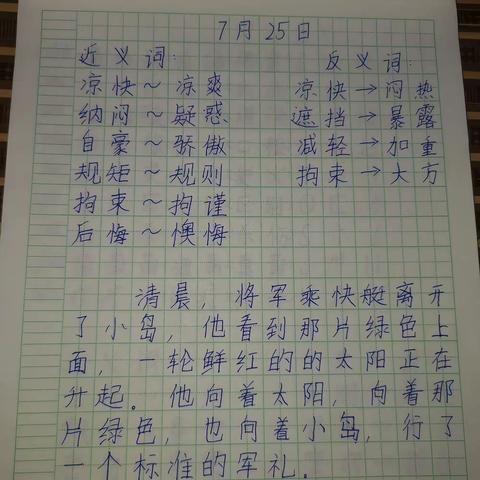 7月25日
近义词: 反义词:
凉快～凉爽 凉快→闷热
纳闷～疑惑 遮挡→暴露
自豪～骄傲 减轻→加重
规矩～规则 拘束→大方
拘束～拘谨
后悔～懊悔
清晨，将军乘快艇离开
了小岛，他看到那片绿色上
面，一轮鲜红的的太阳正在
升起。他向着太阳，向着那
片绿色，也向着小岛，行了
一个标准的军礼.